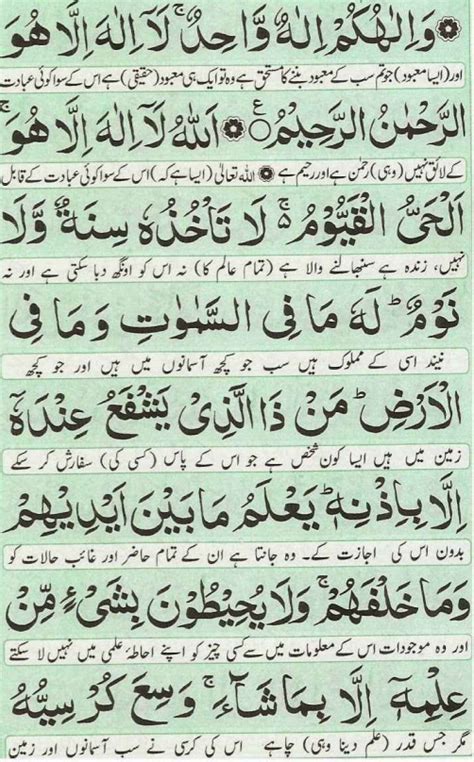 وَاِلٰهُكُمْ اِلٰهٌ وَّاحِدٌ ۚ لَآ اِلٰهَ اِلَّا هُوَ
اور (ایسا معبود) جو تم سب کے معبود بننے کا مستحق ہے وہ تو ایک ہی معبود (حقیقی) ہے اس کے سوا کوئی عبادت
الرَّحْمٰنُ الرَّحِيْمُ ۝ اَللّٰهُ لَآ اِلٰهَ اِلَّا هُوَ ۚ
کے لائق نہیں (وہی) رحمٰن ہے اور رحیم ہے اللہ تعالیٰ (ایسا ہے کہ) اس کے سوا کوئی عبادت کے قابل
اَلْحَيُّ الْقَيُّوْمُ ۚ لَا تَاْخُذُهٗ سِنَةٌ وَّلَا
نہیں، زندہ ہے سنبھالنے والا ہے (تمام عالم کا) نہ اس کو اونگھ دبا سکتی ہے اور نہ
نَوْمٌ ؕ لَهٗ مَا فِى السَّمٰوٰتِ وَمَا فِى
نیند اسی کے مملوک ہیں سب جو کچھ آسمانوں میں ہیں اور جو کچھ
الْاَرْضِ ؕ مَنْ ذَا الَّذِىْ يَشْفَعُ عِنْدَهٗٓ
زمین میں ہیں ایسا کون شخص ہے جو اس کے پاس (کسی کی) سفارش کر سکے
اِلَّا بِاِذْنِهٖ ؕ يَعْلَمُ مَا بَيْنَ اَيْدِيْهِمْ
بدون اس کی اجازت کے۔ وہ جانتا ہے ان کے تمام حاضر اور غائب حالات کو
وَمَا خَلْفَهُمْ ۚ وَلَا يُحِيْطُوْنَ بِشَىْءٍ مِّنْ
اور وہ موجودات اس کے معلومات میں سے کسی چیز کو اپنے احاطۂ علمی میں نہیں لا سکتے
عِلْمِهٖٓ اِلَّا بِمَا شَآءَ ۚ وَسِعَ كُرْسِيُّهُ
مگر جس قدر (علم دینا وہی) چاہے اس کی کرسی نے سب آسمانوں اور زمین